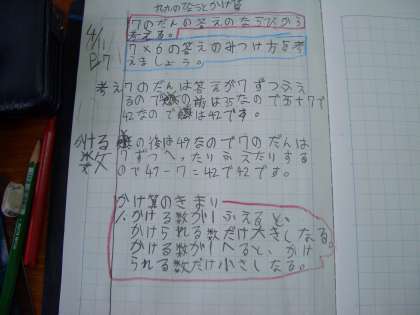 九九のならびとかけ算
4/11
P.7
7のだんの答えのならびから
考える。
7×6の答えのみつけ方を考
えましょう。
考え7のだんは答えが7ずつふえ
るので の前は35なので35+7で
42なので は42です。
かける数 の後は49なので7のだんは
7ずつへったりふえたりする
ので49-7=42で42です。
かけ算のきまり
1.かける数が1ふえると、
かけられる数だけ大きくなる。
かける数が1へると、かけ
られる数だけ小さくなる。